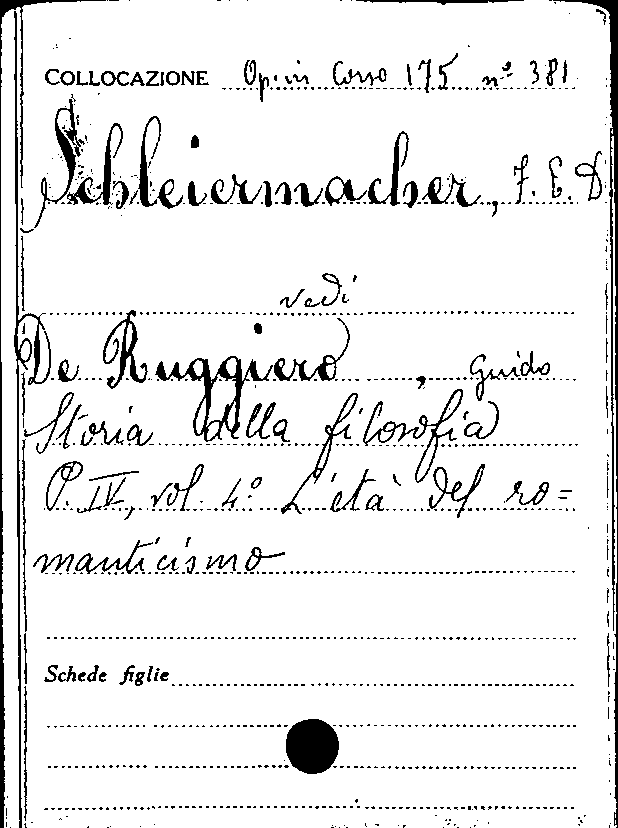 COLLOCAZIONE Op. in Corso 175 nº 381
Schleiermacher, F. E. D
vedi
De Ruggiero, Guido
Storia della filosofia
P. IV, vol. 4º L'età del ro=
manticismo
Schede figlie